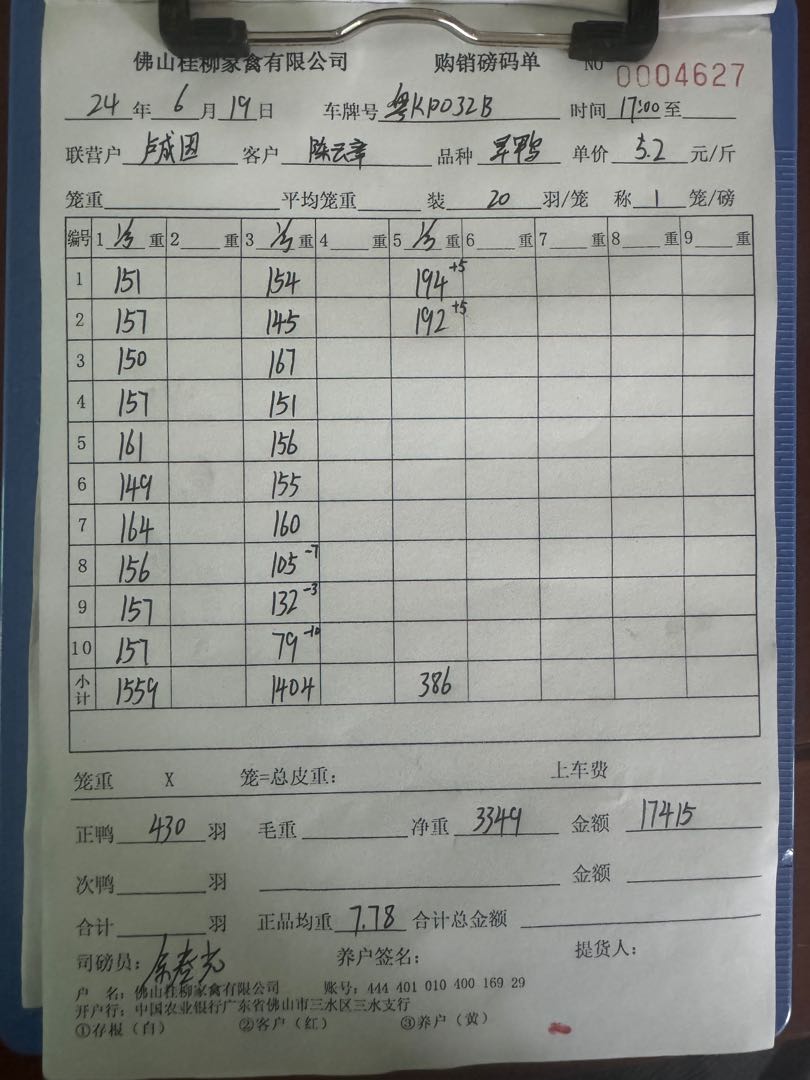 佛山桂柳家禽有限公司 购销磅码单 NO 0004627
24 年 6 月 19 日 车牌号 粤KP032B 时间 17:00 至
联营户 卢成因 客户 陈云章 品种 旱鸭 单价 5.2 元/斤
笼重 平均笼重 装 20 羽/笼 称 1 笼/磅
编号 1 重 2 重 3 重 4 重 5 重 6 重 7 重 8 重 9 重
1 151 154 194 +5
2 157 145 192 +5
3 150 167
4 157 151
5 161 156
6 149 155
7 164 160
8 156 105 -7
9 157 132 -3
10 157 79 -10
小计 1559 1404 386
笼重 X 笼=总皮重: 上车费
正鸭 430 羽 毛重 净重 3349 金额 17415
次鸭 羽 金额
合计 羽 正品均重 7.78 合计总金额
司磅员: 养户签名: 提货人:
户 名: 佛山桂柳家禽有限公司 账号: 444 401 010 400 169 29
开户行: 中国农业银行广东省佛山市三水区三水支行
①存根(白) ②客户(红) ③养户(黄)